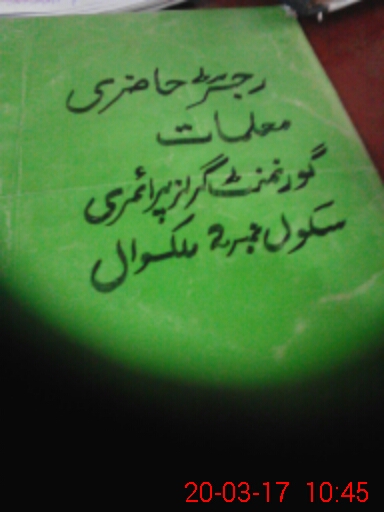 رجسٹر حاضری
معلمات
گورنمنٹ گرلز پرائمری
سکول نمبر 2 ملکسوال
20-03-17 10:45